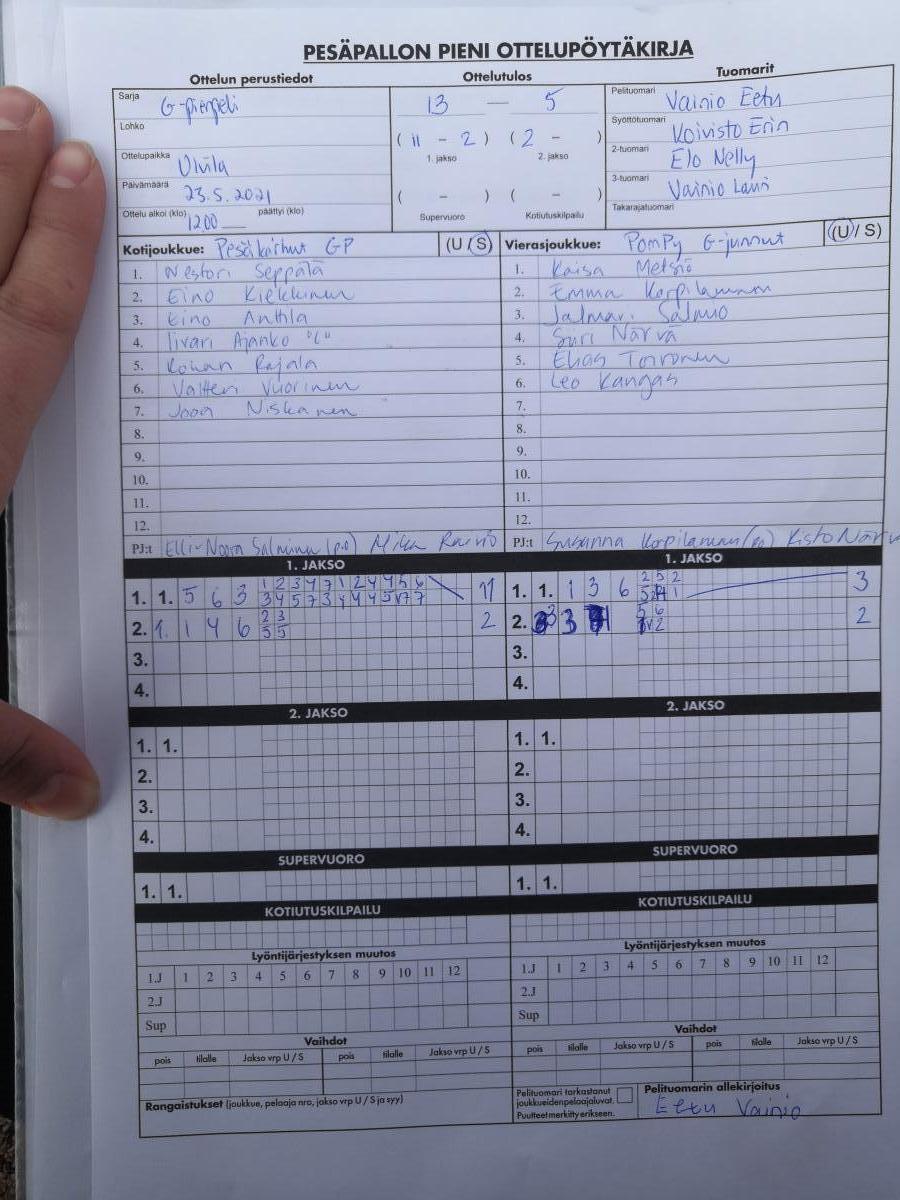 PESÄPALLON PIENI OTTELUPÖYTÄKIRJA
Ottelun perustiedot Ottelutulos Tuomarit
Sarja G-pienpeli
Lohko
Ottelupaikka Ulvila
Päivämäärä 23.5.2021
Ottelu alkoi (klo) 1200 päättyi (klo)
13 — 5
( 11 - 2 ) ( 2 - )
1. jakso 2. jakso
( - ) ( - )
Supervuoro Kotiutuskilpailu
Pelituomari Vainio Eetu
Syöttötuomari Koivisto Erin
2-tuomari Elo Nelly
3-tuomari Vainio Lauri
Takarajatuomari
Kotijoukkue: Pesäkarhut GP (U / S)
1. Nestori Seppälä
2. Eino Kiekkinen
3. Eino Anttila
4. Iivari Ajanko "C"
5. Rohan Rajala
6. Valtteri Vuorinen
7. Joon Niskanen
8.
9.
10.
11.
12.
PJ:t Elli-Noora Salminen (p.o) Mika Raivio
Vierasjoukkue: PomPy G-junnut (U / S)
1. Kaisa Metsiö
2. Emma Korpilamman
3. Jalmari Salmo
4. Siiri Närvä
5. Elias Toivonen
6. Leo Kangas
7.
8.
9.
10.
11.
12.
PJ:t Susanna Korpilamman (po) Kisto Närvä
1. JAKSO 1. JAKSO
1. 1. 5 6 3 11
2. 1. 1 4 6 2 3 5 5 2
3.
4.
1. 1. 1 3 6 3
2. 3 2
3.
4.
2. JAKSO 2. JAKSO
1. 1. 1. 1.
2. 2.
3. 3.
4. 4.
SUPERVUORO SUPERVUORO
1. 1. 1. 1.
KOTIUTUSKILPAILU KOTIUTUSKILPAILU
Lyöntijärjestyksen muutos Lyöntijärjestyksen muutos
1.J 1 2 3 4 5 6 7 8 9 10 11 12 1.J 1 2 3 4 5 6 7 8 9 10 11 12
2.J 2.J
Sup Sup
Vaihdot Vaihdot
pois tilalle Jakso vrp U / S pois tilalle Jakso vrp U / S pois tilalle Jakso vrp U / S pois tilalle Jakso vrp U / S
Rangaistukset (joukkue, pelaaja nro, jakso vrp U / S ja syy)
Pelituomari tarkastanut
joukkueidenpelaajaluvat.
Puutteet merkitty erikseen.
Pelituomarin allekirjoitus
Eetu Vainio